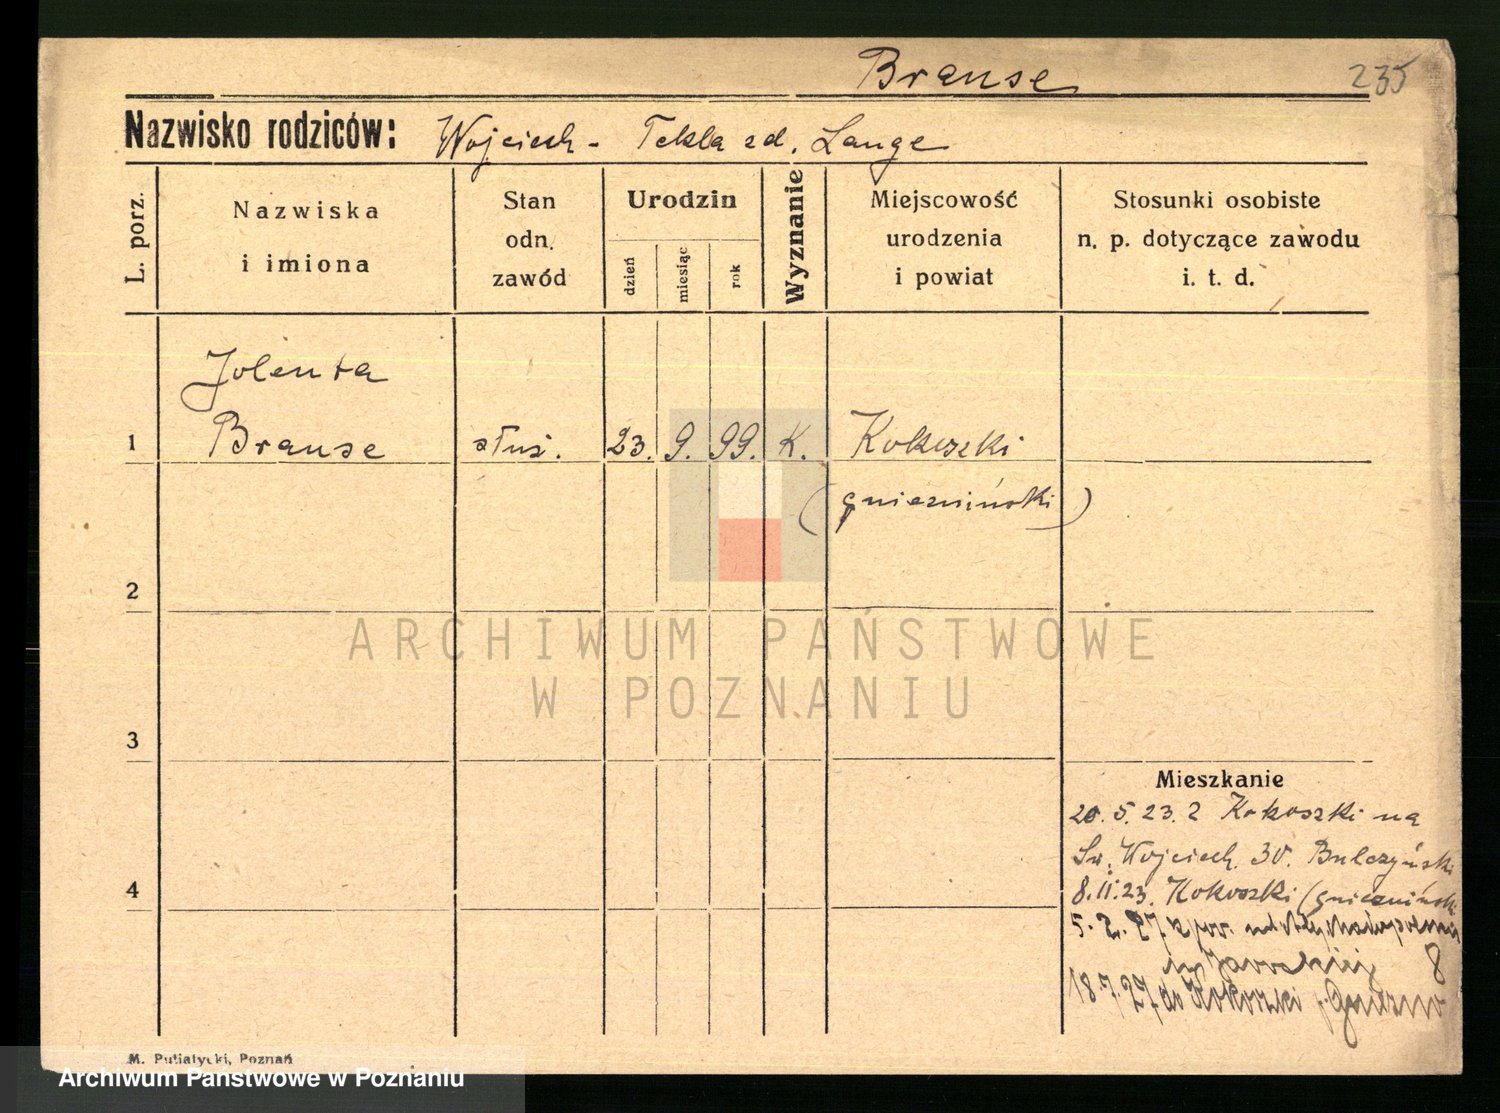 Brause
235
Nazwisko rodziców: Wojciech - Tekla zd. Lange
L. porz.
Nazwiska
i imiona
Stan
odn.
zawód
Urodzin
dzień
miesiąc
rok
Wyznanie
Miejscowość
urodzenia
i powiat
Stosunki osobiste
n. p. dotyczące zawodu
i. t. d.
Jolenta
1 Brause służ. 23. 9. 99. K. Kokoszki
(gnieźnieński)
2
ARCHIWUM PAŃSTWOWE
W POZNANIU
3
Mieszkanie
20. 5. 23. z Kokoszki na
Św. Wojciech. 30. Bulczyński
4
8.11.23. Kokoszki (gnieźnieńsk
5. 2. 27 z
8
18.7.27 do Kokoszki p. Gniezno
M. Putiatycki, Poznań
Archiwum Państwowe w Poznaniu